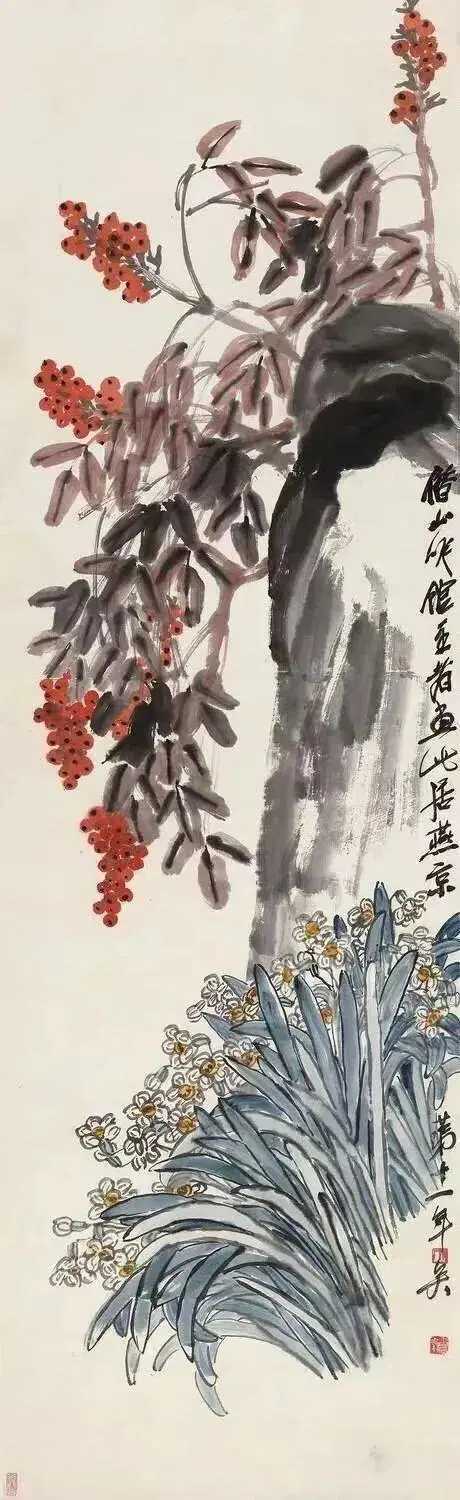 借山吟馆主者画此居燕京
第十一年矣